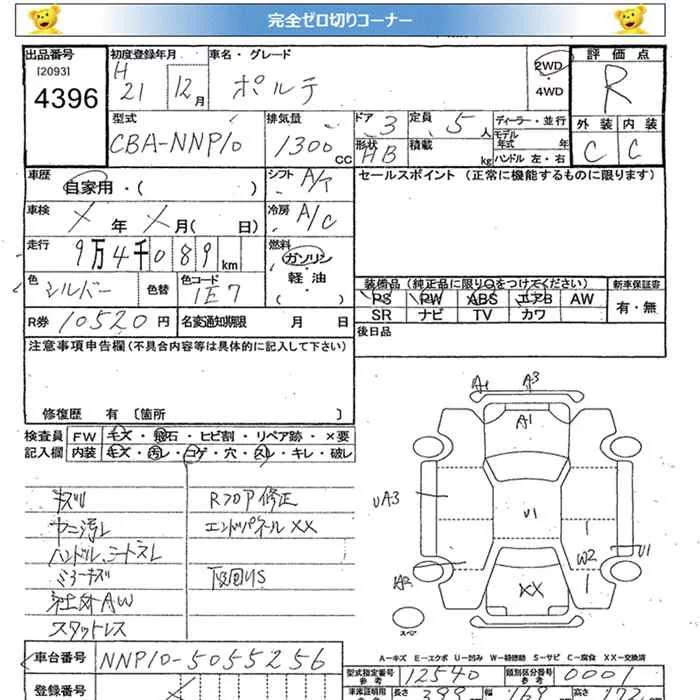 完全ゼロ切りコーナー
出品番号 初度登録年月 車名・グレード 評価点
[2093] H 2WD
4396 21 12月 ポルテ 4WD R
型式 排気量 ドア 3 定員 5人 ディーラー・並行 外装 内装
モデル年式 年
CBA-NNP10 1300cc 形状 HB 積載 kg ハンドル 左・右 C C
車歴 シフト A/T セールスポイント (正常に機能するものに限ります)
自家用・( )
車検 X年 X月( 日) 冷房 A/C
走行 9万4千089km 燃料 ガソリン
軽油
( )
色 シルバー 色替 色コード 1E7 装備品 (純正品に限り○をつけてください) 新車保証書
PS PW ABS エアB AW 有・無
SR ナビ TV カワ
R券 10520円 名変通知期限 月 日 後日品
注意事項申告欄(不具合内容等は具体的に記入して下さい)
修復歴 有 〔箇所 〕
検査員 FW キズ・飛石・ヒビ割・リペア跡・×要
記入欄 内装 キズ・汚レ・コゲ・穴・スレ・キレ・破レ
A1 A3
A1
UA3
U1
W2 U1
A2
XX
スペア
キズU RフロアP修正
ヤニ汚レ エンドパネルXX
ハンドル、シートスレ
ミラーキズ 下回りS
社外AW
スタットレス
A-キズ E-エクボ U-凹み W-補修跡 S-サビ C-腐食 XX-交換済
車台番号 NNP10-5055256 型式指定番号 参考 12540 類別区分番号 参考 0001
登録番号 車庫証明用 長さ 399 幅 169 高さ